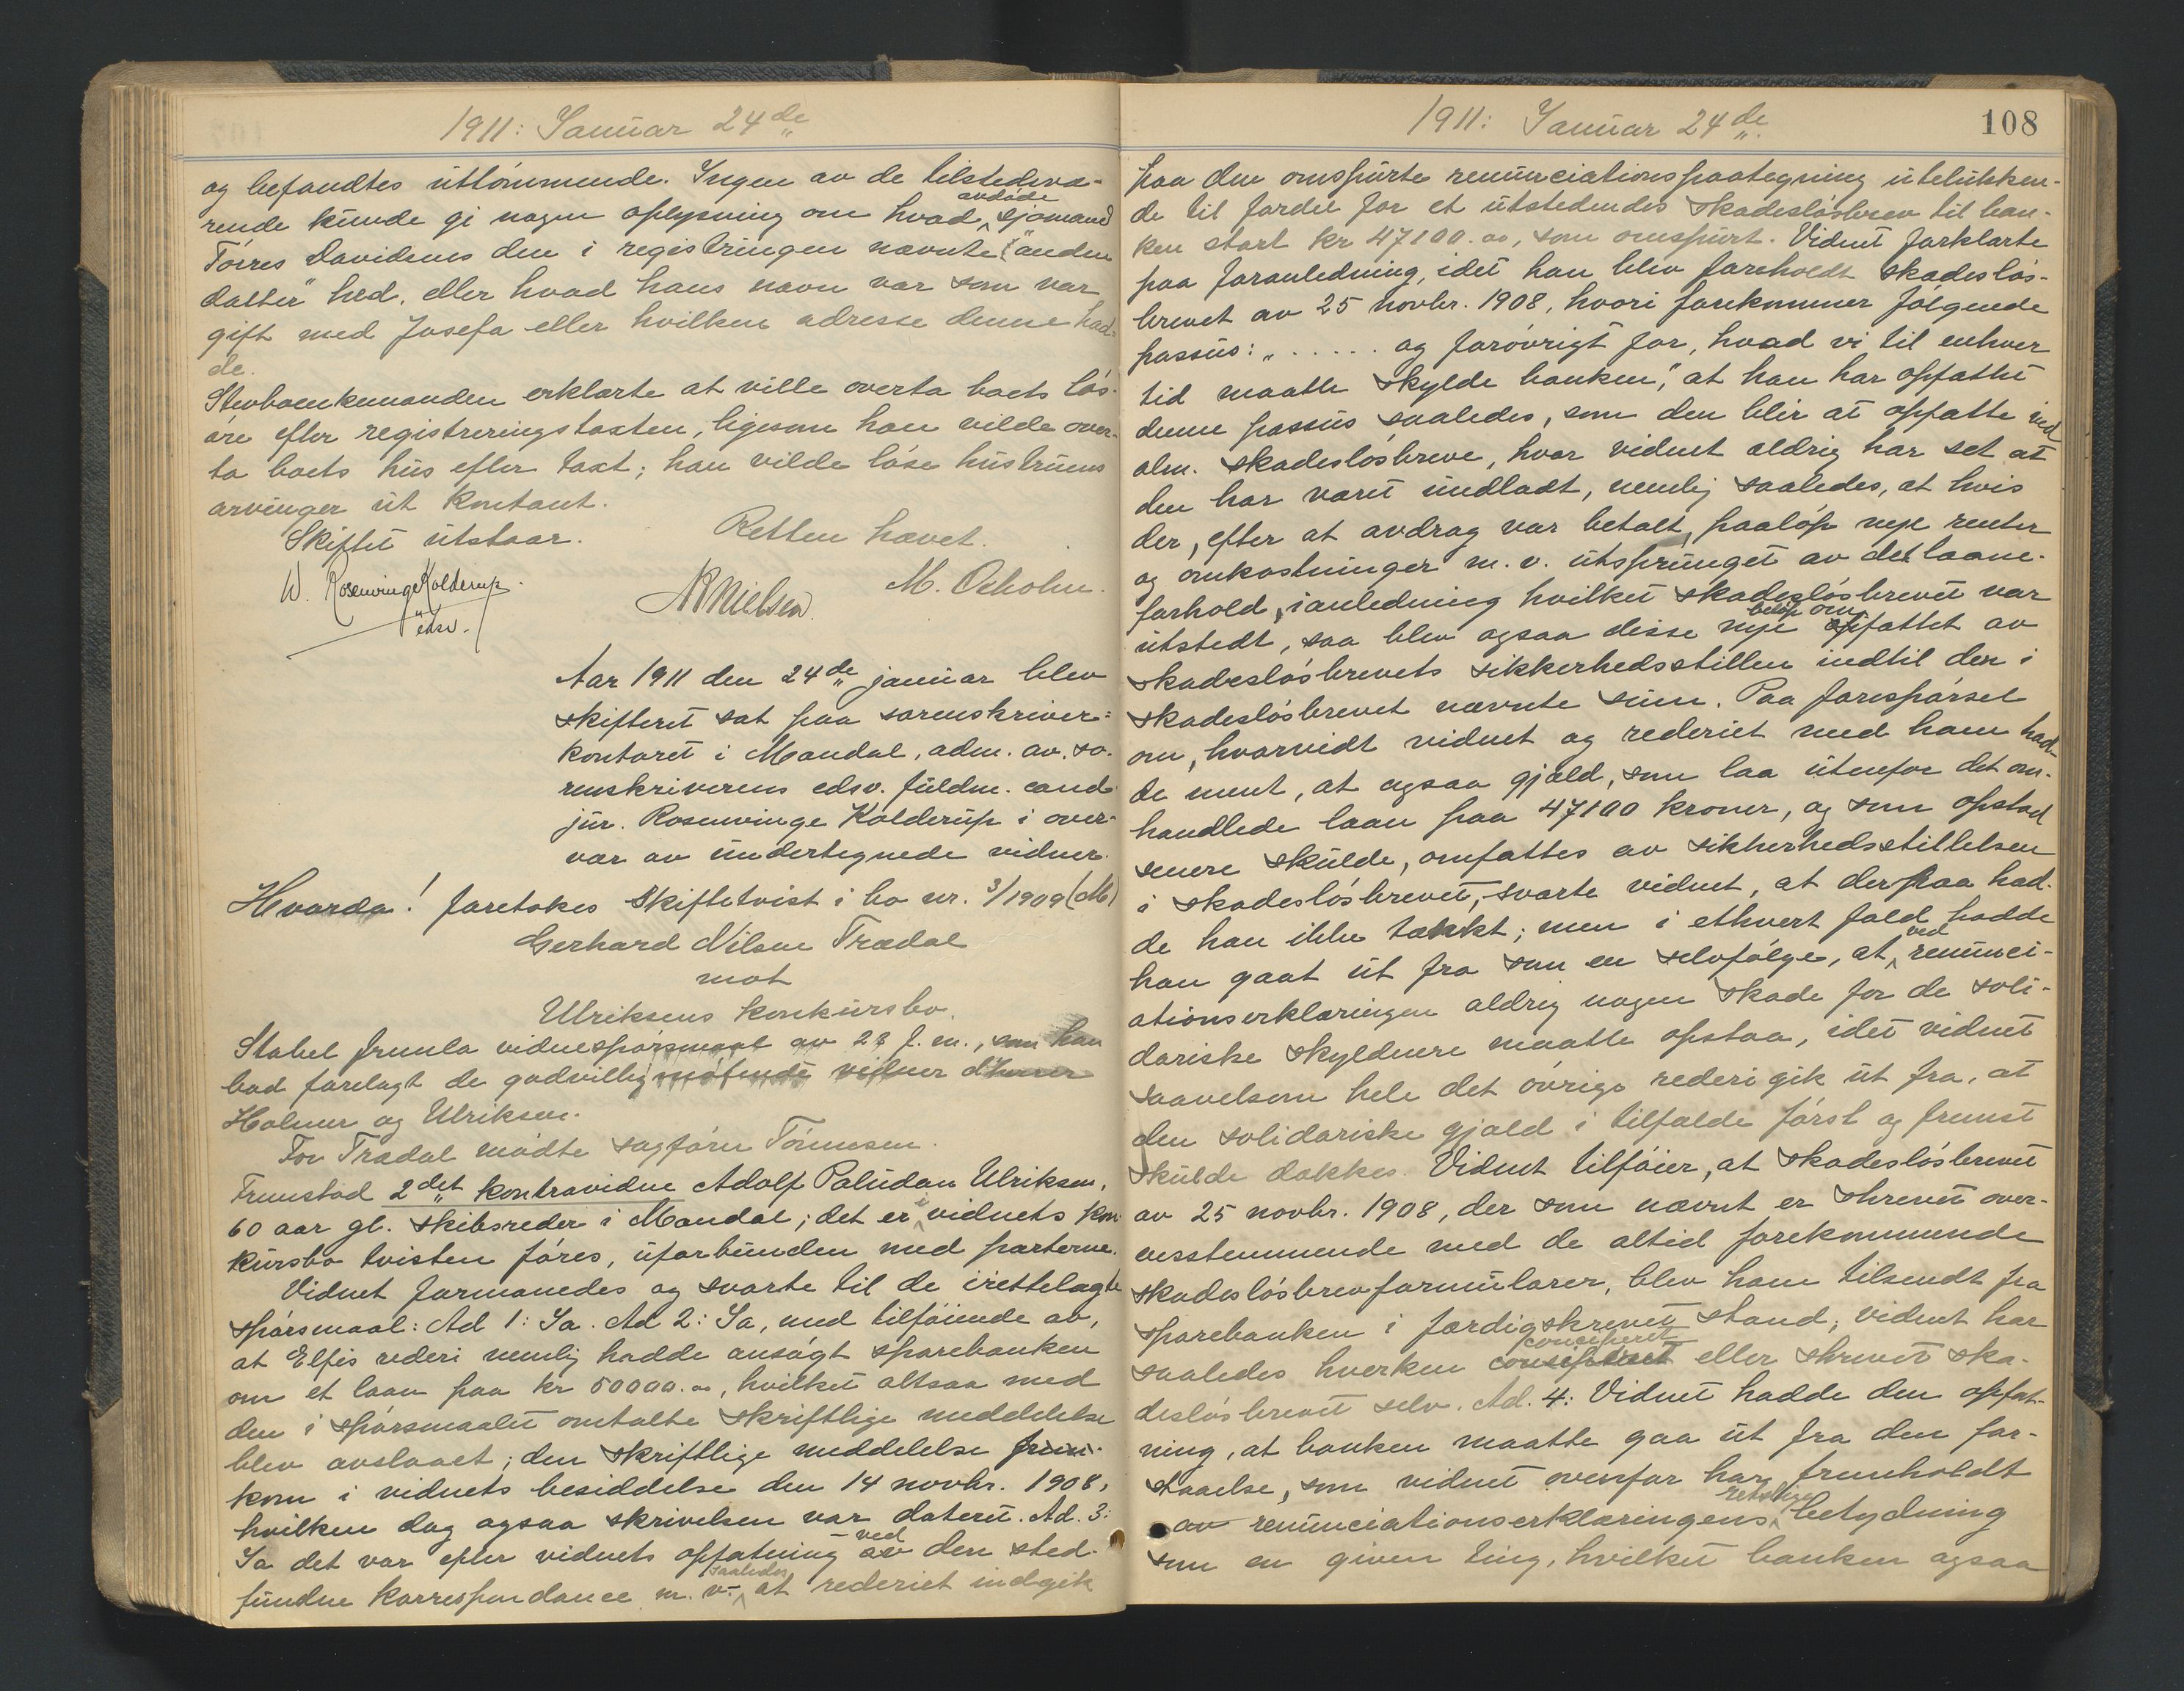 1911: Januar 24de
og befandtes uttømmende. Ingen av de tilstedevæ-
rende kunde gi nogen oplysning om hvad avdøde sjømand
Tørres Davidsens den i registringen nævnte "anden
datter" hed, eller hvad hans navn var som var
gift med Josefa eller hvilken adresse denne had-
de.
Stervboenkemanden erklærte at ville overta boets løs-
øre efter registreringstaxten, ligesom han vilde over-
ta boets hus efter taxt; han vilde løse hustruens
arvinger ut kontant.
Skiftet utstaar. Retten hævet.
W. Rosenvinge Kolderup. NNielsen. M. Ocholm.
edsv.
Aar 1911 den 24de januar blev
skifteret sat paa sorenskriver-
kontoret i Mandal, adm. av so-
renskriverens edsv. fuldm. cand.
jur. Rosenvinge Kolderup i over-
vær av undertegnede vidner.
Hvorda! foretokes Skiftetvist i bo nr. 3/1909 (M)
Gerhard Nilsen Trædal
mot
Ulriksens konkursbo.
Stabel fremla vidnespørsmaal av 23 f. m., som han
bad forelagt de godvillig møtende vidner d'herrer
Holmer og Ulriksen.
For Trædal mødte sagfører Tønnesen.
Fremstod 2det kontravidne Adolf Paludan Ulriksen,
60 aar gl. skibsreder i Mandal; det er i vidnets kon-
kursbo tvisten føres, uforbunden med parterne.
Vidnet formanedes og svarte til de irettelagte
spørsmaal: Ad 1: Ja. Ad 2: Ja, med tilføiende av,
at Elfis rederi nemlig hadde ansøgt sparebanken
om et laan paa kr 50000.00, hvilket altsaa med
den i spørsmaalet omtalte skriftlige meddelelse
blev avslaaet; den skriftlige meddelelse frem-
kom i vidnets besiddelse den 14 novbr. 1908,
hvilken dag ogsaa skrivelsen var dateret. Ad. 3:
Ja det var efter vidnets opfatning av ved den sted-
fundne korrespondance m. v. saaledes at rederiet indgik
1911: Januar 24de 108
paa den omspurte renunciationspaategning utelukken-
de til fordel for et utstedendes skadesløsbrev til ban-
ken stort kr 47100.00, som omspurt. Vidnet forklarte
paa foranledning, idet han blev foreholdt skadesløs-
brevet av 25 novbr. 1908, hvori forekommer følgende
passus: "..... og forøvrigt for, hvad vi til enhver
tid maatte skylde banken", at han har opfattet
denne passus saaledes, som den blir at opfatte ved
alm. skadesløsbreve, hvor vidnet aldrig har set at
den har været undladt, nemlig saaledes, at hvis
der, efter at avdrag var betalt, paaløp nye renter
og omkostninger m. v. utsprunget av det laane-
forhold, i anledning hvilket skadesløsbrevet var
utstedt, saa blev ogsaa disse nye beløp omfattet av
skadesløsbrevets sikkerhedsstillen indtil den i
skadesløsbrevet nævnte sum. Paa forespørsel
om, hvorvidt vidnet og rederiet med ham had-
de ment, at ogsaa gjæld, som laa utenfor det om-
handlede laan paa 47100 kroner, og som opstod
senere skulde, omfattes av sikkerhedsstillelsen
i skadesløsbrevet, svarte vidnet, at derpaa had-
de han ikke tænkt; men i ethvert fald hadde
han gaat ut fra som en selvfølge, at ved renunci-
ationserklæringen aldrig nogen skade for de soli-
dariske skyldnere maatte opstaa, idet vidnet
saavelsom hele det øvrige rederi gik ut fra, at
den solidariske gjæld i tilfælde først og fremst
skulde dækkes. Vidnet tilføier, at skadesløsbrevet
av 25 novbr. 1908, der som nævnt er skrevet over-
ensstemmende med de altid forekommende
skadesløsbrevformularer, blev ham tilsendt fra
sparebanken i færdigskrevet stand; vidnet har
saaledes hverken concipieret eller skrevet ska-
desløsbrevet selv. Ad. 4: Vidnet hadde den opfat-
ning, at banken maatte gaa ut fra den for-
staaelse, som vidnet ovenfor har fremholdt
av renunciationserklæringens retslige betydning
som en given ting, hvilket banken ogsaa